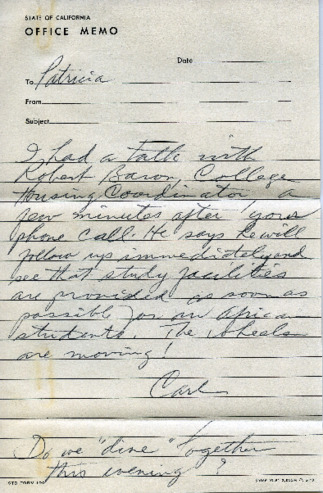 STATE OF CALIFORNIA
OFFICE MEMO
Date
To Patricia
From
Subject
I had a talk with
Robert Baron, College
Housing Coordinator a
few minutes after your
phone call. He says he will
follow up immediately and
see that study facilities
are provided as soon as
possible for an African
students. The wheels
are moving!
Carl
Do we "dine" together
this evening?
STD FORM